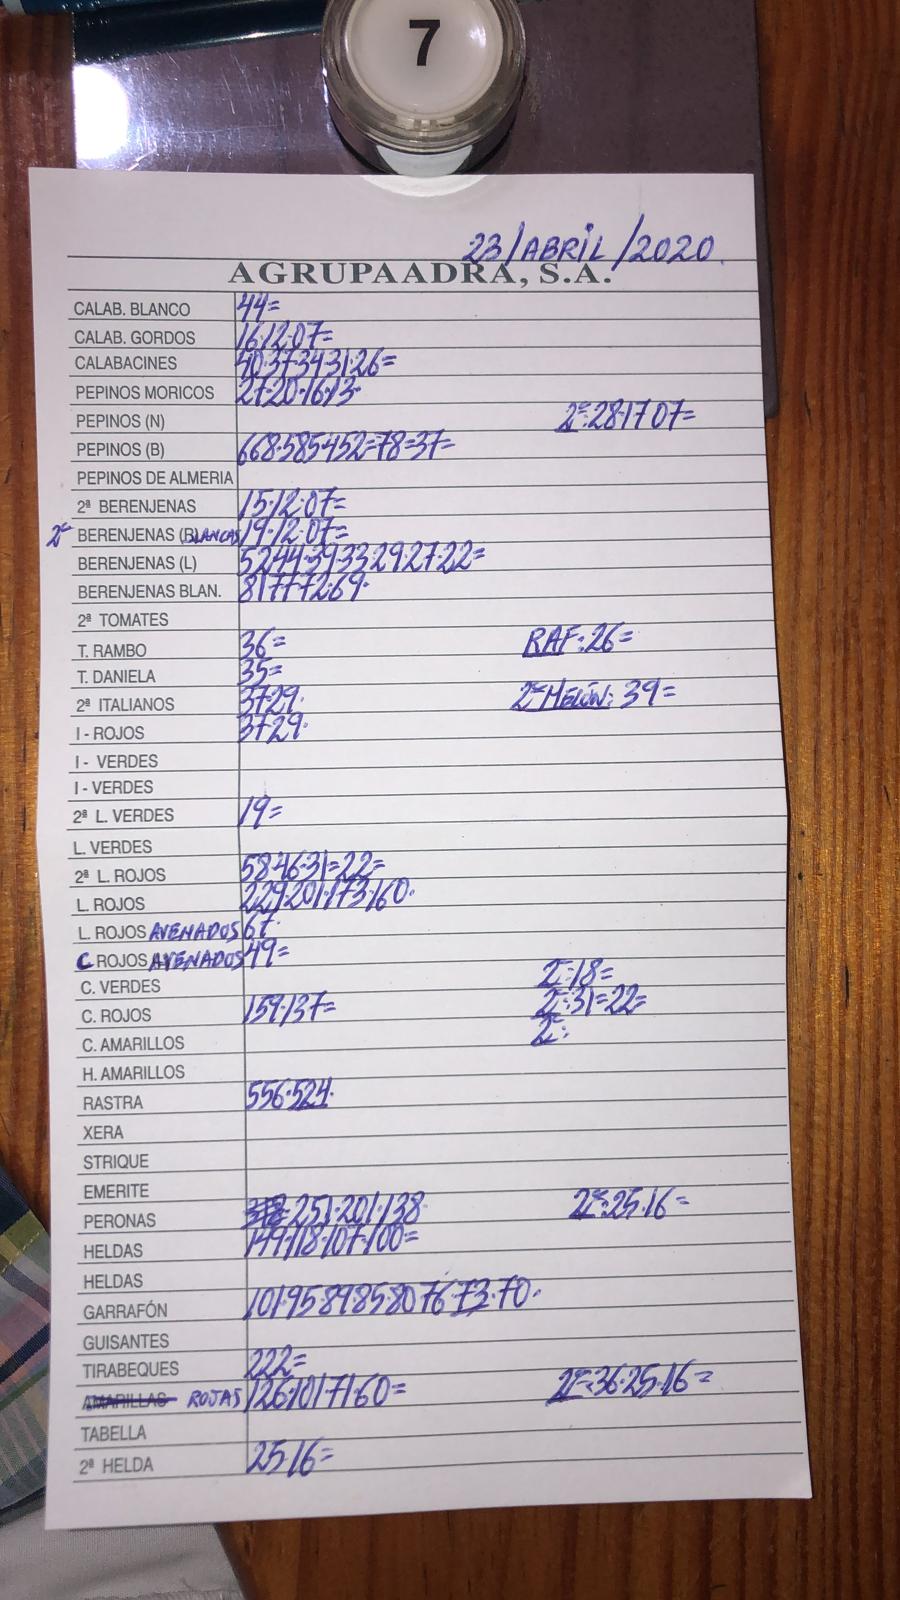 7
23/ABRIL/2020.
AGRUPAADRA, S.A.
CALAB. BLANCO 44=
CALAB. GORDOS 16·12·07=
CALABACINES 40·37·34·31·26=
PEPINOS MORICOS 27·20·16·13·
PEPINOS (N) 2ª:28·17 07=
PEPINOS (B) 668·585·452=78=37=
PEPINOS DE ALMERIA
2ª BERENJENAS 15·12·07=
2ª BERENJENAS (BLANCAS 19·12·07=
BERENJENAS (L) 52·44·39·33·29·27·22=
BERENJENAS BLAN. 81·77·72·69·
2ª TOMATES
T. RAMBO 36= RAF:26=
T. DANIELA 35=
2ª ITALIANOS 37·29· 2ª MELÓN: 39=
I - ROJOS 37·29·
I - VERDES
I - VERDES
2ª L. VERDES 19=
L. VERDES
2ª L. ROJOS 58·46·31=22=
L. ROJOS 229·201·173·160·
L. ROJOS AVENADOS 67·
C ROJOS AVENADOS 49=
C. VERDES 2ª:18=
C. ROJOS 159·137= 2ª:31=22=
C. AMARILLOS 2ª:
H. AMARILLOS
RASTRA 556·524·
XERA
STRIQUE
EMERITE
PERONAS 251·201·138 2ª:25·16=
HELDAS 149·118·107·100=
HELDAS
GARRAFÓN 101·95·89·85·80·76·73·70·
GUISANTES
TIRABEQUES 222=
AMARILLAS ROJAS 126·101·71·60= 2ª:36·25·16=
TABELLA
2ª HELDA 25·16=